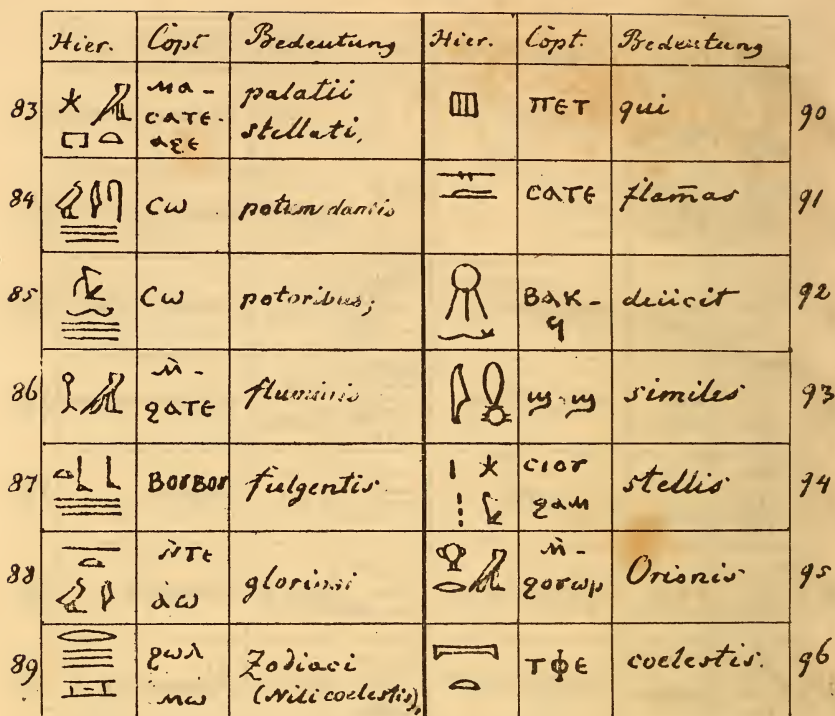 Hier. Copt Bedeutung Hier. Copt. Bedeutung
83 ⲙⲁ- ⲥⲁⲧⲉ- ⲁϩⲉ palatii stellati, ⲡⲉⲧ qui 90
84 ⲥⲱ potum dantis ⲥⲁⲧⲉ flam̄as 91
85 ⲥⲱ potoribus; ⲃⲁⲕ- ϥ deiicit 92
86 ⲛ̀- ϩⲁⲧⲉ fluminis similes 93
87 ⲃⲟⲩⲃⲟⲩ fulgentis ⲥⲓⲟⲩ ϩⲁⲙ stellis 94
88 ⲛ̀ⲧⲉ ⲁ̀ⲱ gloriosi ⲛ̀- ϩⲟⲩⲱⲣ Orionis 95
89 ϩⲱⲗ ⲙⲱ Zodiaci (Nili coelestis), ⲧⲫⲉ coelestis. 96